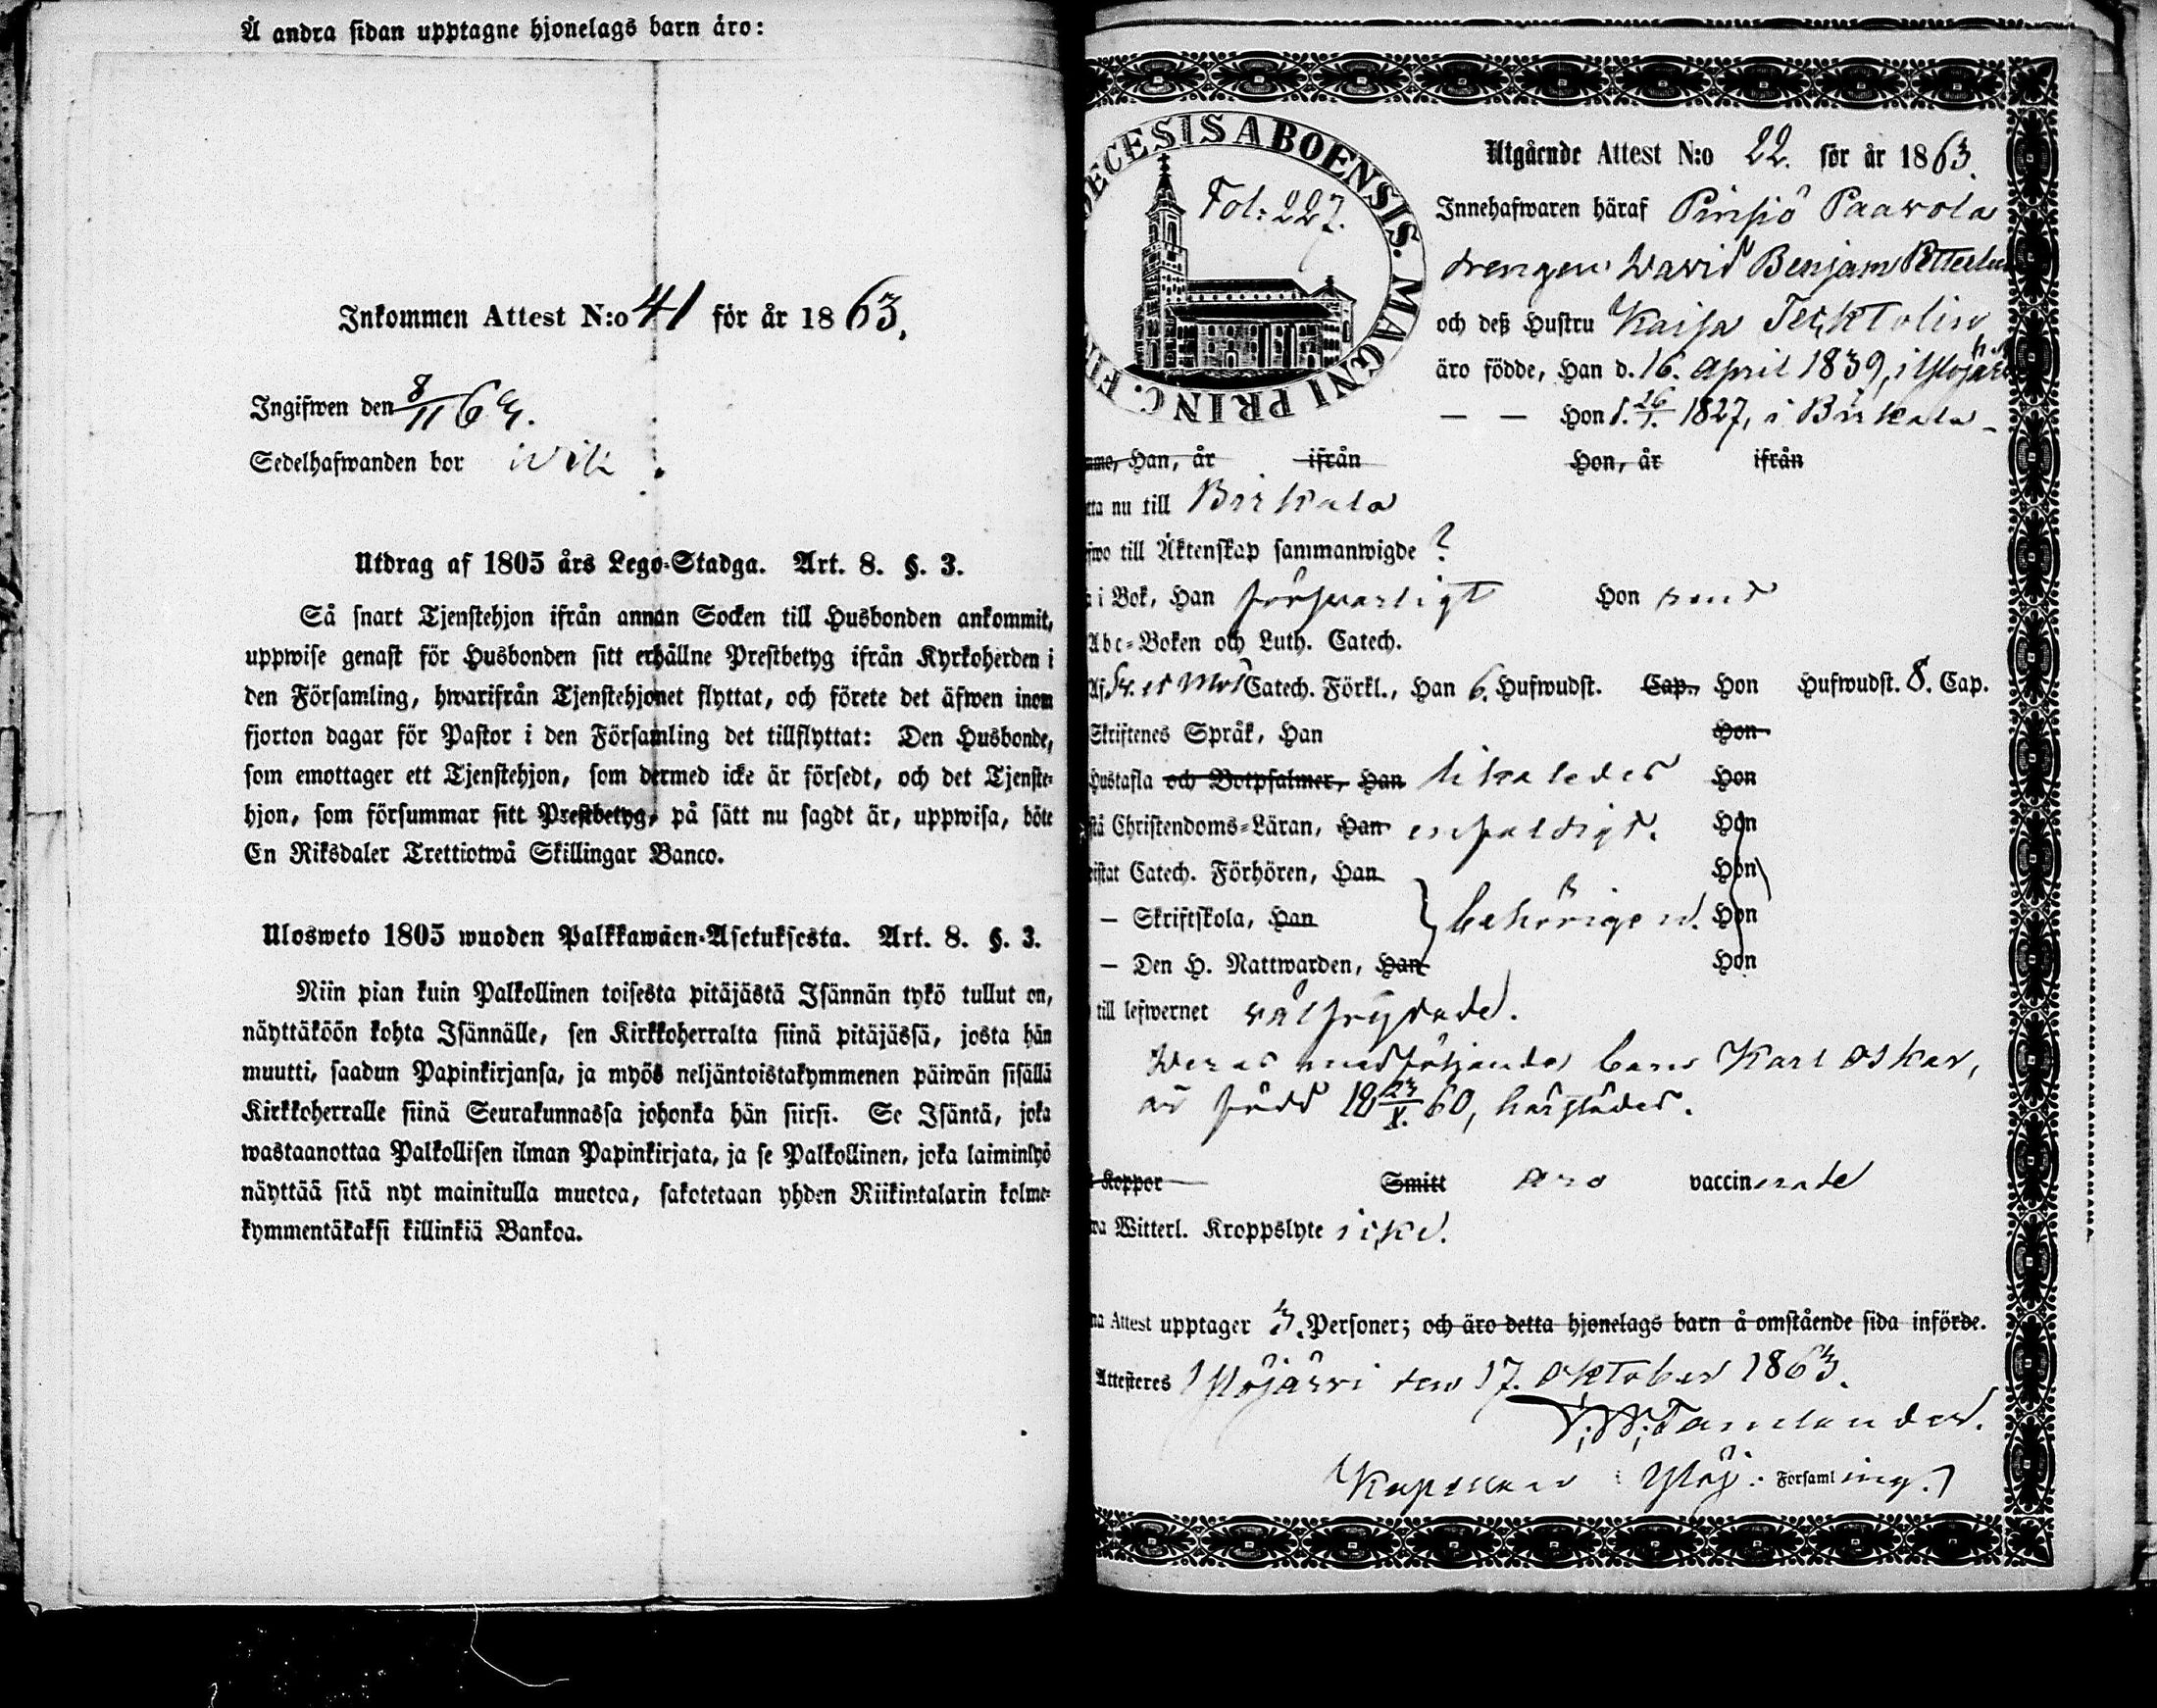 Å andra sidan upptagne hjonelags barn äro:
Inkommen Attest N:o 41 för år 1863.
Ingifwen den 8/11 63.
Sedelhafwanden bor
Utdrag af 1805 års Lego-Stadga. Art. 8. §. 3.
Så snart Tjenstehjon ifrån annan Socken till Husbonden ankommit,
uppwise genast för Husbonden sitt erhållne Prestbetyg ifrån Kyrkoherden i
den Församling, hwarifrån Tjenstehjonet flyttat, och förete det äfwen inom
fjorton dagar för Pastor i den Församling det tillflyttat: Den Husbonde,
som emottager ett Tjenstehjon, som dermed icke är försedt, och det Tjenste-
hjon, som försummar sitt Prestbetyg, på sätt nu sagdt är, uppwisa, böte
En Riksdaler Trettiotwå Skillingar Banco.
Ulosweto 1805 wuoden Palkkawäen-Asetuksesta. Art. 8. §. 3.
Niin pian kuin Palkollinen toisesta pitäjästä Isännän tykö tullut on,
näyttäköön kohta Isännälle, sen Kirkkoherralta siinä pitäjässä, josta hän
muutti, saadun Papinkirjansa, ja myös neljäntoistakymmenen päiwän sisällä
Kirkkoherralle siinä Seurakunnassa johonka hän siirsi. Se Isäntä, joka
wastaanottaa Palkollisen ilman Papinkirjata, ja se Palkollinen, joka laiminlyö
näyttää sitä nyt mainitulla muotoa, sakotetaan yhden Riikintalarin kolme-
kymmentäkaksi killinkiä Bankoa.
DECESIS ABOENSIS. MAGNI PRINC. FI
Fol: 227.
Utgående Attest N:o 22. för år 1863.
Innehafwaren häraf Pinsiö Paavola
drengen David Benjam
och deß Hustru Kaisa
äro födde, Han d. 16. April 1839, i Ylöjärvi
— — Hon d. 26/1. 1827, i Birkala
Han, år ifrån Hon, år ifrån
tta nu till Birkala
fwo till Äktenskap sammanwigde ?
i Bok, Han försvarligt Hon
Abc-Boken och Luth. Catech.
Af Catech. Förkl., Han 6. Hufwudst. Cap., Hon Hufwudst. 8. Cap.
Skriftenes Språk, Han Hon
Hustafla och Botpsalmer, Han likaledes Hon
stå Christendoms-Läran, Han enfaldigt. Hon
istat Catech. Förhören, Han Hon
— Skriftskola, Han behörigen. Hon
— Den H. Nattwarden, Han Hon
till lefwernet välfrejdade.
Deras medföljande barn Karl Oskar,
är född 18 23/X. 60, härstädes.
Koppor Smitt äro vaccinerade
wa Witterl. Kroppslyte icke.
na Attest upptager 3. Personer; och äro detta hjonelags barn å omstående sida införde.
Attesteres Ylöjärvi den 17. Oktober 1863.
Kapellan i Ylöj: Forsamling.